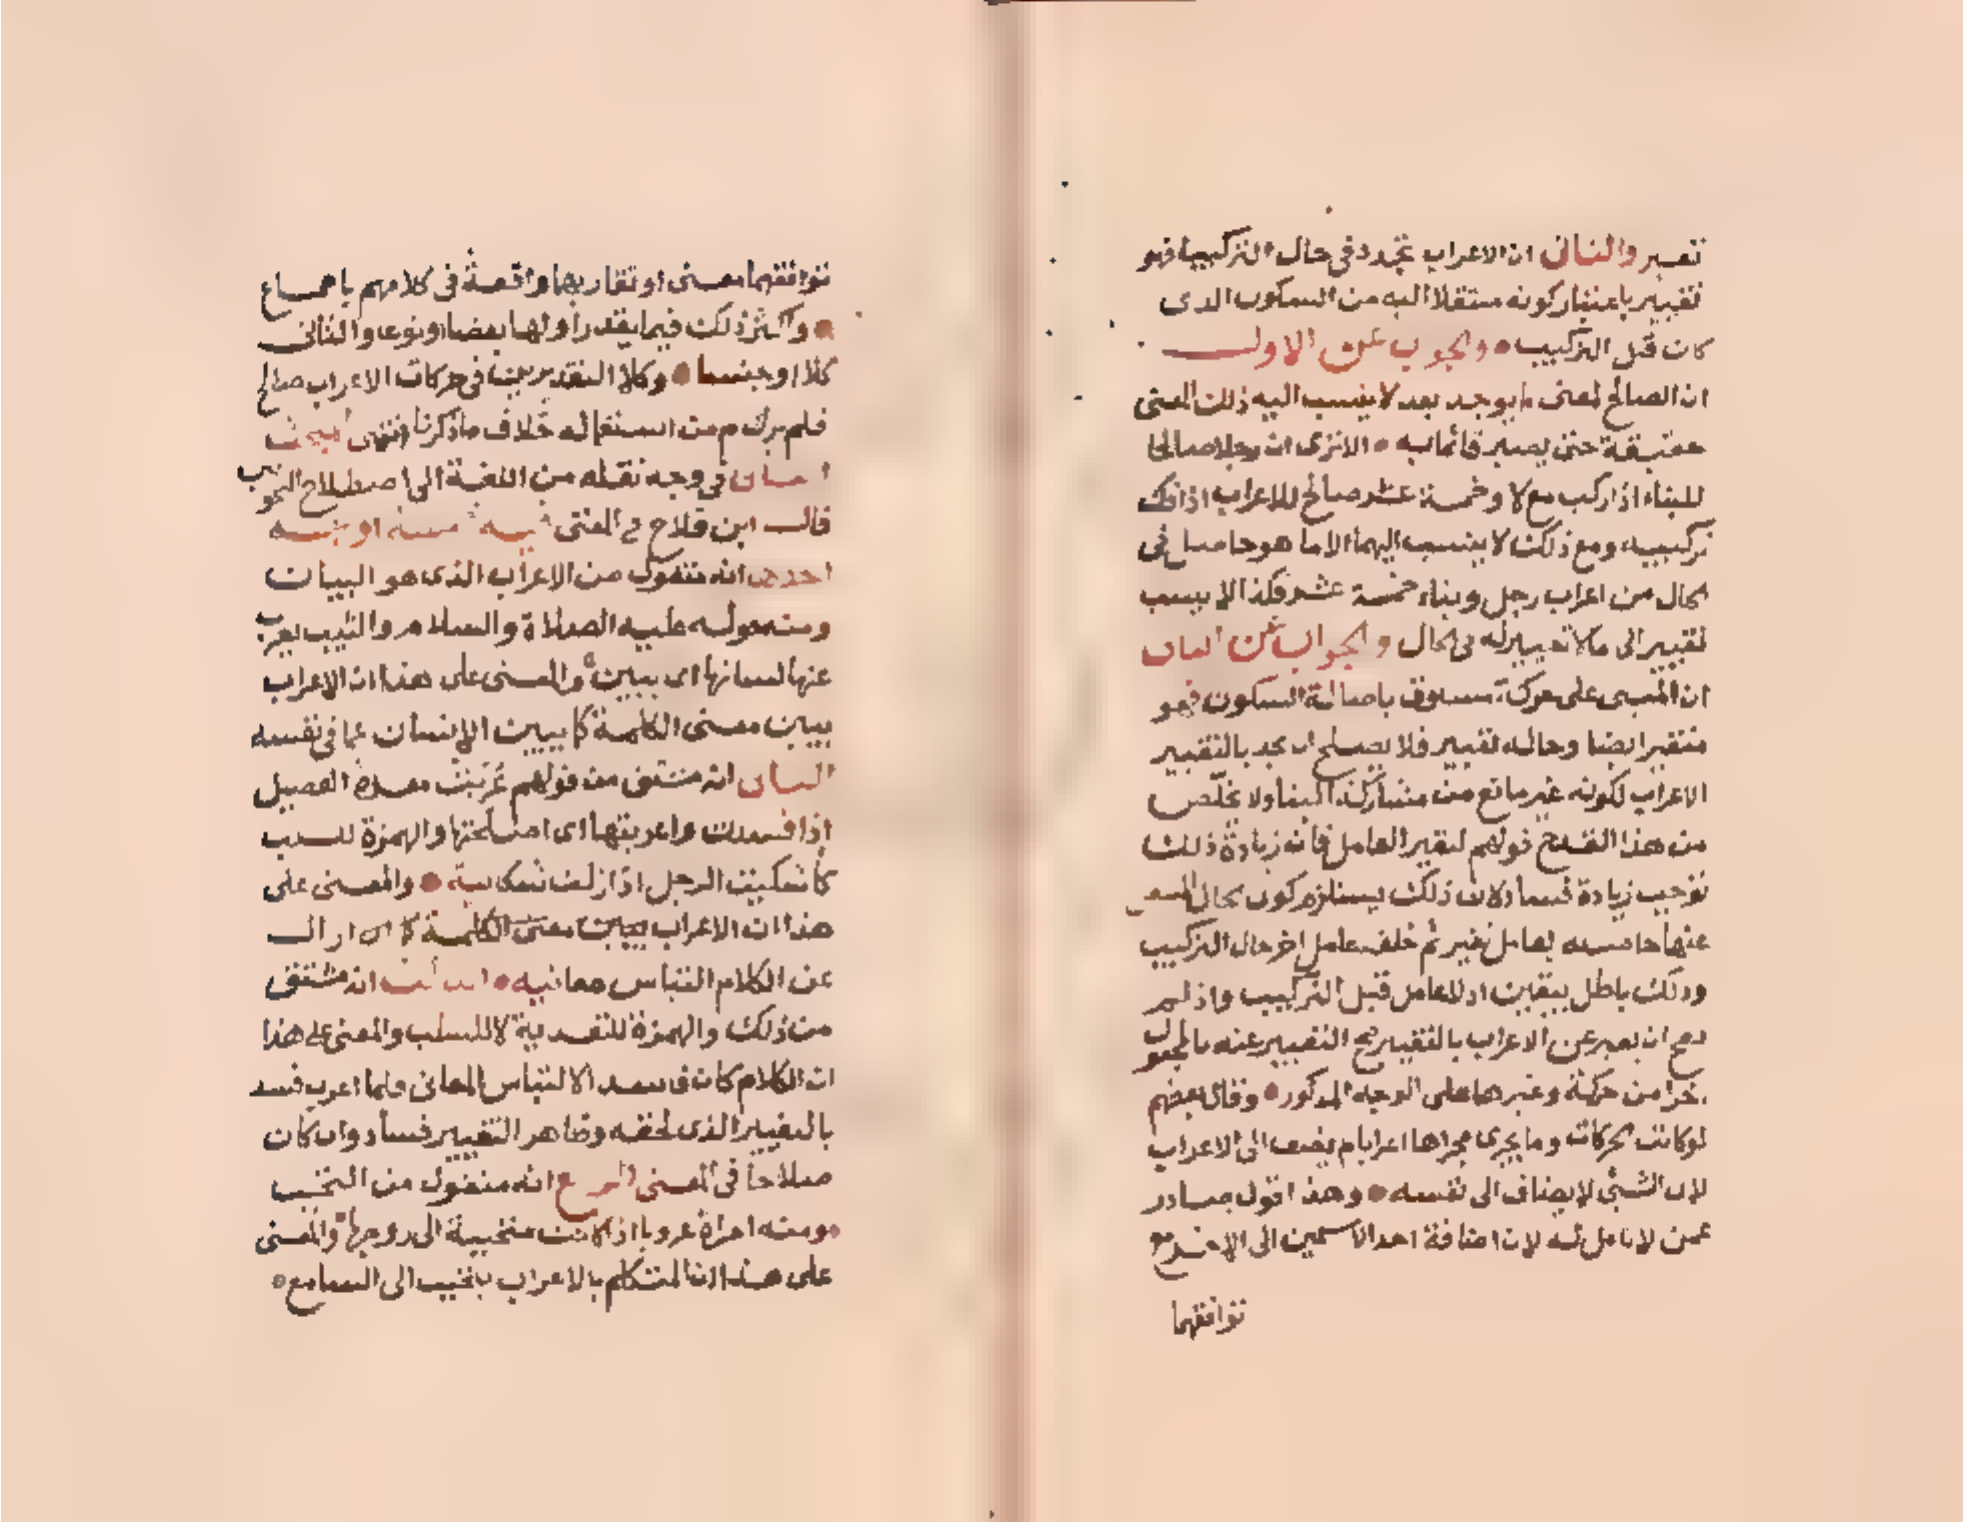 تغيير والثاني ان الاعراب تجدد في حال التركيب فهو
تغيير باعتبار كونه منتقلا اليه من السكون الذى
كان قبل التركيب والجواب عن الاول
ان الصالح لمعنى لم يوجد بعد لا ينسب اليه ذلك المعنى
حقيقة حتى يصير قائما به الا ترى ان رجلا صالحا
للبناء اذا ركب مع لا وخمسة عشر صالح للاعراب اذا فك
تركيبه ومع ذلك لا ينسب اليهما الا ما هو حاصل في
الحال من اعراب رجل وبناء خمسة عشر فكذا لا ينسب
تغيير الى ما لا تغيير له في الحال والجواب عن الثاني
ان المبنى على حركة مسبوق باصالة السكون فهو
متغير ايضا وحاله تغيير فلا يصلح ان يحد بالتغيير
الاعراب لكونه غير مانع من مشاركة البناء ولا يخلص
من هذا القدح قولهم لتغير العامل فانه زيادة ذلك
توجب زيادة فساد لان ذلك يستلزم كون الحال المنتقل
عنها حاصله لعامل تغير ثم خلفه عامل اخر حال التركيب
وذلك باطل بيقين اذ لا عامل قبل التركيب واذ لم
يصح ان يعبر عن الاعراب بالتغيير صح التعبير عنه بالمجعول
اخرا من حركة وغيرها على الوجه المذكور وقال بعضهم
لو كانت الحركات وما يجرى مجراها اعرابا لم يضف الى الاعراب
لان الشئ لا يضاف الى نفسه وهذا قول صادر
عمن لا تامل له لان اضافة احد الاسمين الى الاخر مع
توافقهما
توافقهما معنى او تقاربهما واقعة في كلامهم باجماع
واكثر ذلك فيما يقدر اولهما بعضا او نوعا والثانى
كلا او جنسا وكلا التقديرين في حركات الاعراب صالح
فلم يلزم من استعماله خلاف ما ذكرنا انتهى المبحث
في وجه نقله من اللغة الى اصطلاح النحويين
قال ابن فلاح في المغنى فيه خمسة اوجه
احدها انه منقول من الاعراب الذى هو البيان
ومنه قوله عليه الصلاة والسلام والثيب يعرب
عنها لسانها اى يبين والمعنى على هذا ان الاعراب
يبين معنى الكلمة كما يبين الانسان عما في نفسه
الثانى انه مشتق من قولهم عربت معدة الفصيل
اذا فسدت واعربتها اى اصلحتها والهمزة للسلب
كاشكيت الرجل اذا ازلت شكايته والمعنى على
هذا ان الاعراب يبين معنى الكلمة كانه ازال
عن الكلام التباس معانيه الثالث انه مشتق
من ذلك والهمزة للتعدية لا للسلب والمعنى على هذا
ان الكلام كان فاسدا لالتباس المعانى فلما اعرب فسد
بالتغيير الذى لحقه وظاهر التغيير فساد وان كان
صلاحا في المعنى الرابع انه منقول من التحبب
ومنه امراة عروبا اذا كانت متحببة الى زوجها والمعنى
على هذا ان المتكلم بالاعراب يتحبب الى السامع